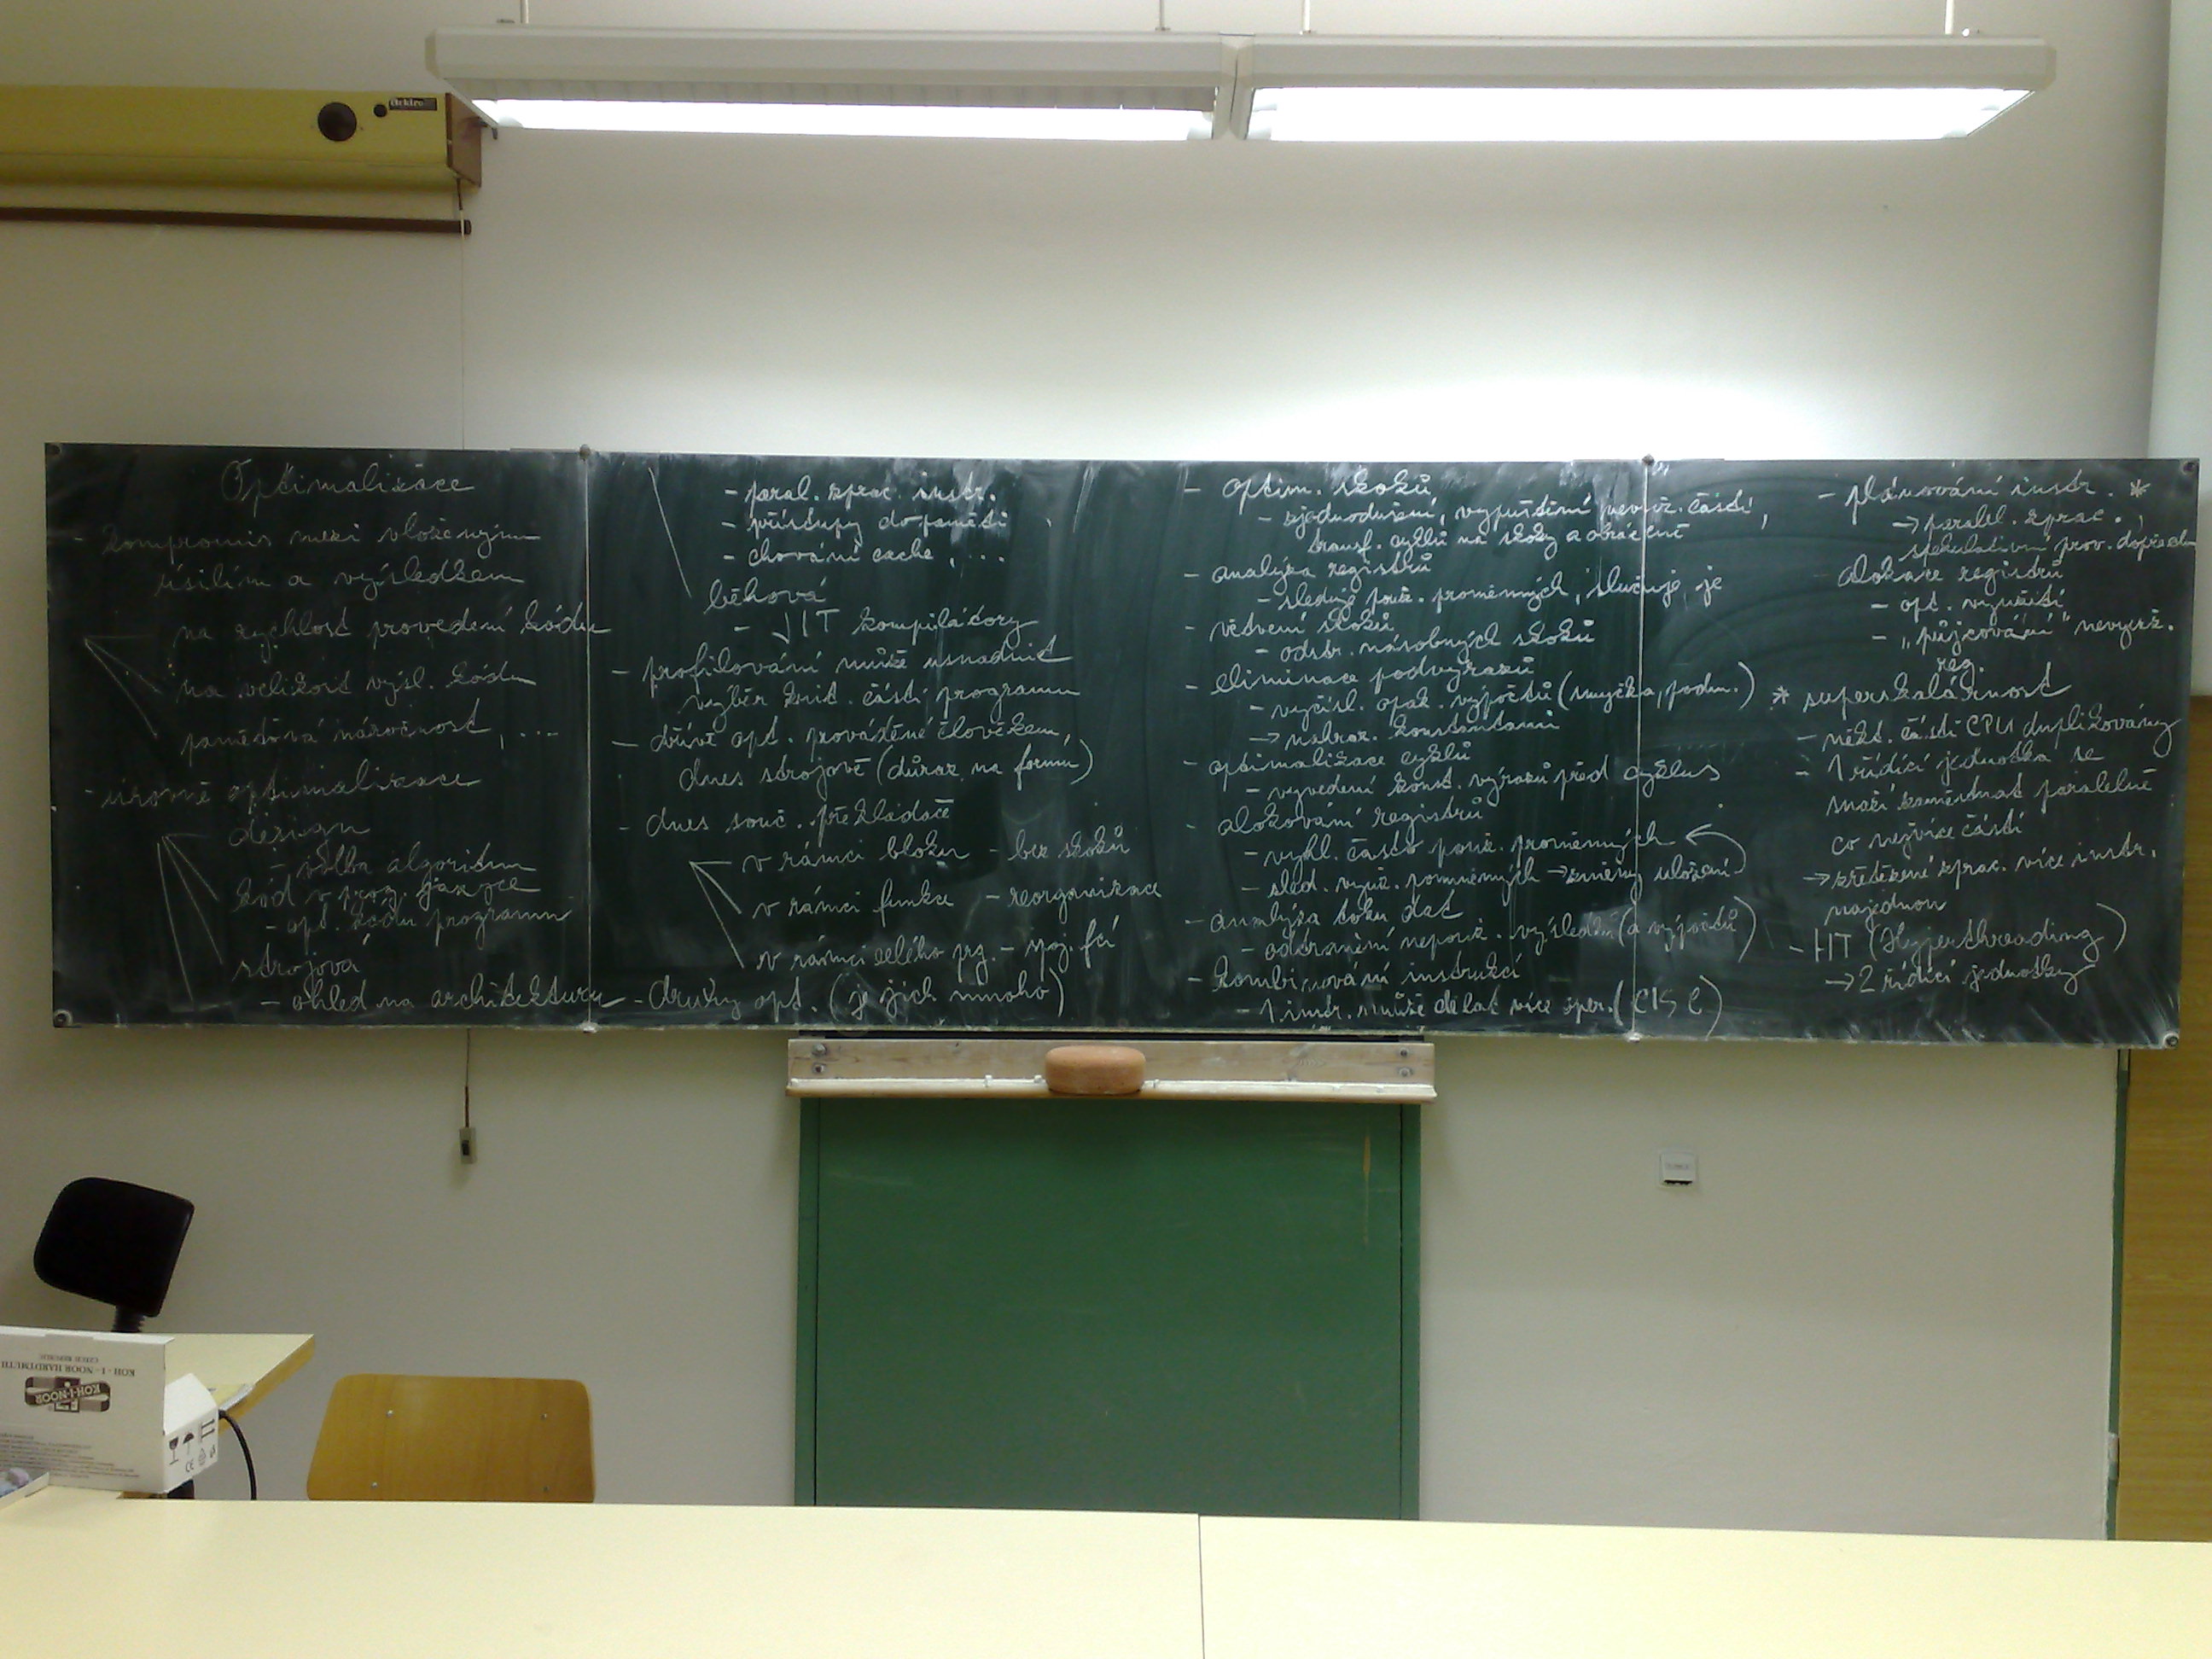 Optimalizace
- kompromis mezi vloženým
úsilím a výsledkem
na rychlost provedení kódu
na velikost výsl. kódu
paměťová náročnost, ...
- úrovně optimalizace
design
- volba algoritm
kód v prog. jazyce
- opt. kódu programu
strojová
- ohled na architekturu
- paral. zprac. instr.
- přístupy do paměti
- chování cache, ...
běhová
- JIT kompilátory
- profilování může usnadnit
výběr krit. částí programu
- dříve opt. prováděné člověkem,
dnes strojově (důraz na formu)
- dnes souč. překladače
v rámci bloku - bez skoků
v rámci funkce - reorganizace
v rámci celého prg. - spoj. fcí
- druhy opt. (je jich mnoho)
- optim. skoků
- zjednodušení, vypuštění nevyuž. částí,
transf. cyklů na skoky a obráceně
- analýza registrů
- sleduje použ. proměnných, slučuje je
- větvení skoků
- odstr. násobných skoků
- eliminace podvýrazů
- vyčísl. opak. výpočtů (smyčka, podm.)
→ nahraz. konstantami
- optimalizace cyklů
- vyvedení konst. výrazů před cyklus
- alokování registrů
- rychl. často použ. proměnných
- sled. využ. proměnných → změny uložení
- analýza toku dat
- odstranění nepouž. výsledků (a výpočtů)
- kombinování instrukcí
- 1 instr. může dělat více oper. (CISC)
- plánování instr. *
→ paralel. zprac.,
spekulativní prov. dopředu
alokace registrů
- opt. využití
- "půjčování" nevyuž.
reg.
* superskalárnost
- někt. části CPU duplikovány
- 1 řídící jednotka se
snaží zaměstnat paralelně
co nejvíce částí
→ zřetězené zprac. více instr.
najednou
- HT (Hyperthreading)
→ 2 řídící jednotky
elektro
KOH-I-NOOR HARDTMUTH
CZECH REPUBLIC
KOH-I-NOOR
CE